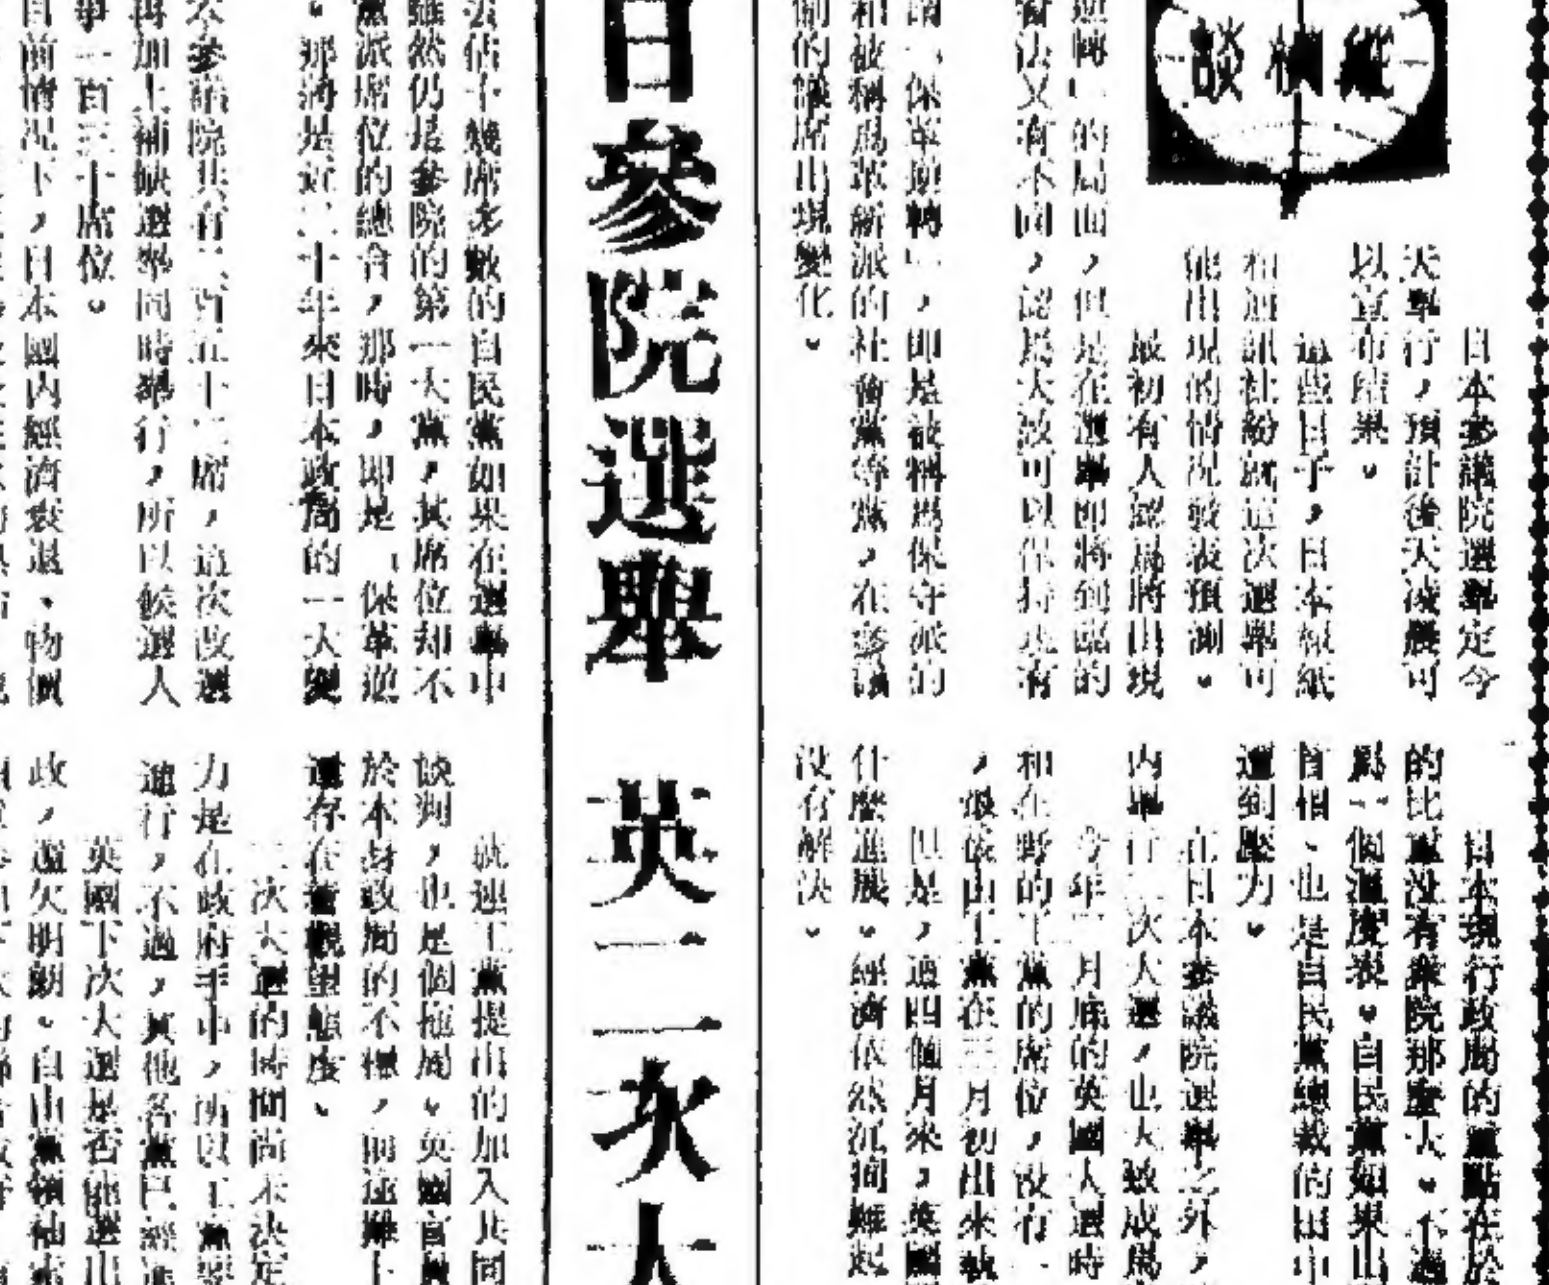 縱橫談
日本參議院選舉定今
天舉行，預計後天淩晨可
以宣布結果。
這些日子，日本報紙
和通訊社紛就這次選舉可
能出現的情況發表預測。
最初有人認爲將出現
逆轉」的局面，但是在選舉即將到臨的
看法又有不同，認爲大致可以保持
謂「保革逆轉」，即是被稱爲保守派的
和被稱爲革新派的社會黨等黨，在參議
制的議席出現變化。
日本現行政局的重點在於
的比重沒有衆院那麼大。不過
爲一個溫度表。自民黨如果
首相、也是自民黨總裁的田中
遭到壓力。
在日本參議院選舉之外，
內舉行二次大選，也大致成爲
今年二月底的英國人選時
和在野的工黨的席位，沒有
，最後由工黨在三月初出來執
但是，過四個月來，英國
什麼進展。經濟依然沉疴難起
沒有解決。
日參院選舉 英二次大
法佔十幾席多數的自民黨如果在選舉中
雖然仍是參院的第一大黨，其席位却不
黨派席位的總合，那時，即是「保革逆
。那將是近二十年來日本政局的一大變
本參議院共有二百五十二席，這次改選
再加上補缺選舉同時舉行，所以候選人
爭一百三十席位。
目前情況下，日本國內經濟衰退、物價
就連工黨提出的加入共同
談判，也是個拖局。英國官員
於本身政局的不穩，前途難卜
還存在着觀望態度。
二次大選的時間尚未決定
力是在政府手中，所以工黨
進行，不過，其他各黨已經進
英國下次大選是否能選出
政，還欠明朗。自由黨領袖索